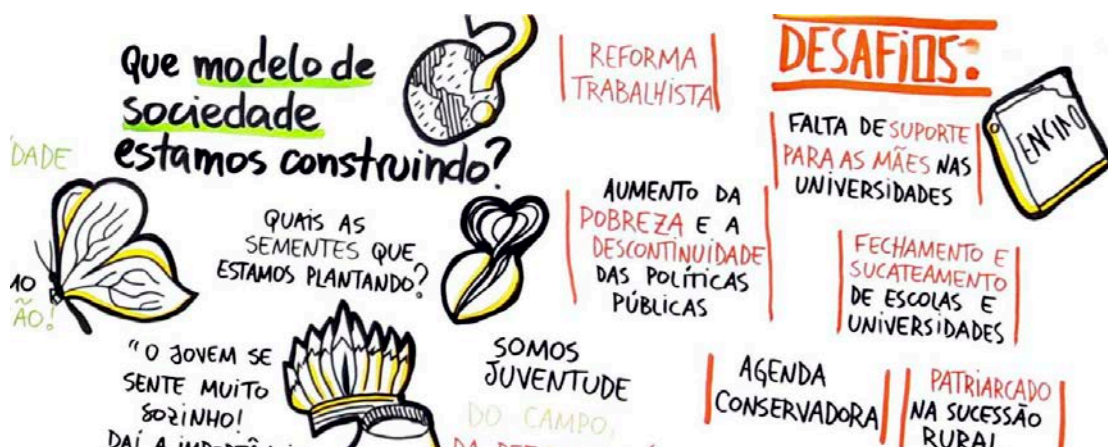 Que modelo de
sociedade
estamos construindo?
DADE
ÃO!
QUAIS AS
SEMENTES QUE
ESTAMOS PLANTANDO?
"O JOVEM SE
SENTE MUITO
SOZINHO!
DAÍ A
SOMOS
JUVENTUDE
DO CAMPO,
REFORMA
TRABALHISTA
AUMENTO DA
POBREZA E A
DESCONTINUIDADE
DAS POLÍTICAS
PÚBLICAS
DESAFIOS:
FALTA DE SUPORTE
PARA AS MÃES NAS
UNIVERSIDADES
ENCINO
FECHAMENTO E
SUCATEAMENTO
DE ESCOLAS E
UNIVERSIDADES
AGENDA
CONSERVADORA
PATRIARCADO
NA SUCESSÃO
RURAL